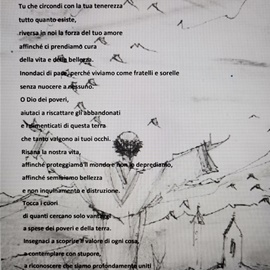 Tu che circondi con la tua tenerezza
tutto quanto esiste,
riversa in noi la forza del tuo amore
affinché ci prendiamo cura
della vita e della bellezza.
Inondaci di pace, perché viviamo come fratelli e sorelle
senza nuocere a nessuno.
O Dio dei poveri,
aiutaci a riscattare gli abbandonati
e i dimenticati di questa terra
che tanto valgono ai tuoi occhi.
Risana la nostra vita,
affinché proteggiamo il mondo e non lo deprediamo,
affinché seminiamo bellezza
e non inquinamento e distruzione.
Tocca i cuori
di quanti cercano solo vantaggi
a spese dei poveri e della terra.
Insegnaci a scoprire il valore di ogni cosa,
a contemplare con stupore,
a riconoscere che siamo profondamente uniti